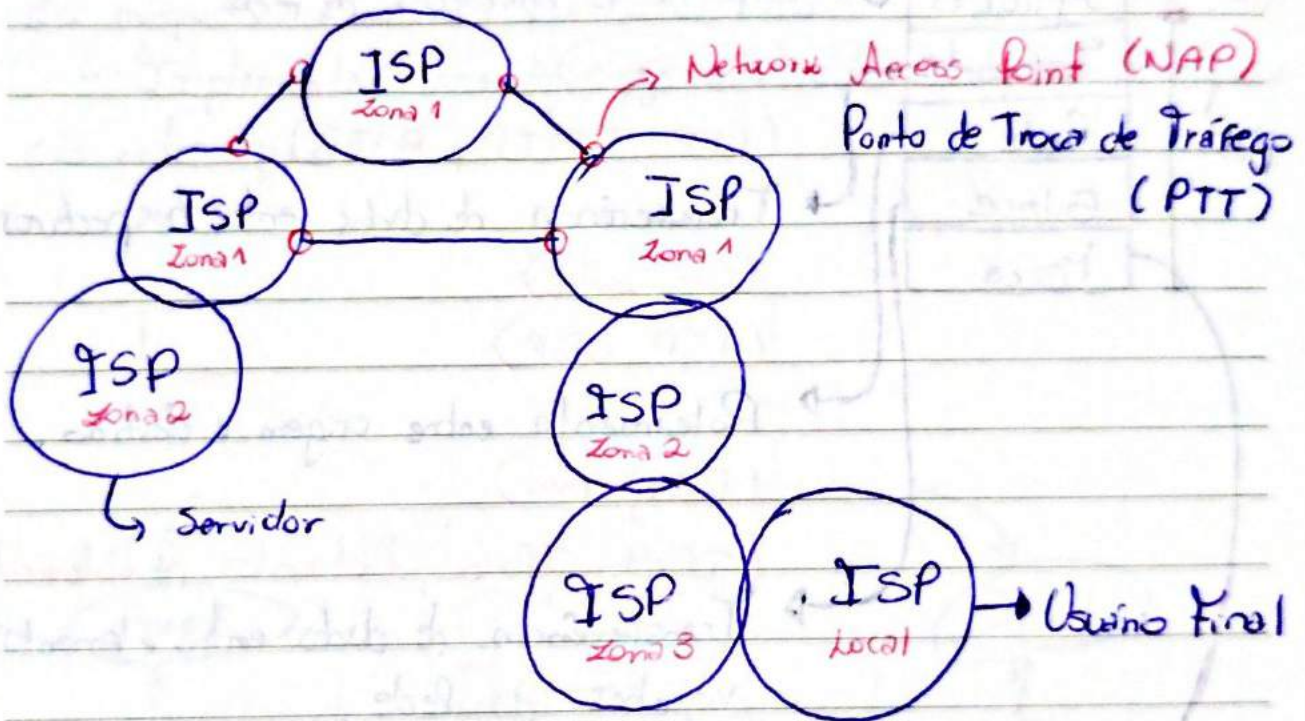 ISP
Zona 1
Network Access Point (NAP)
Ponto de Troca de Tráfego
(PTT)
ISP
Zona 1
ISP
Zona 1
ISP
Zona 2
ISP
Zona 2
Servidor
ISP
Zona 3
ISP
Local
Usuário Final